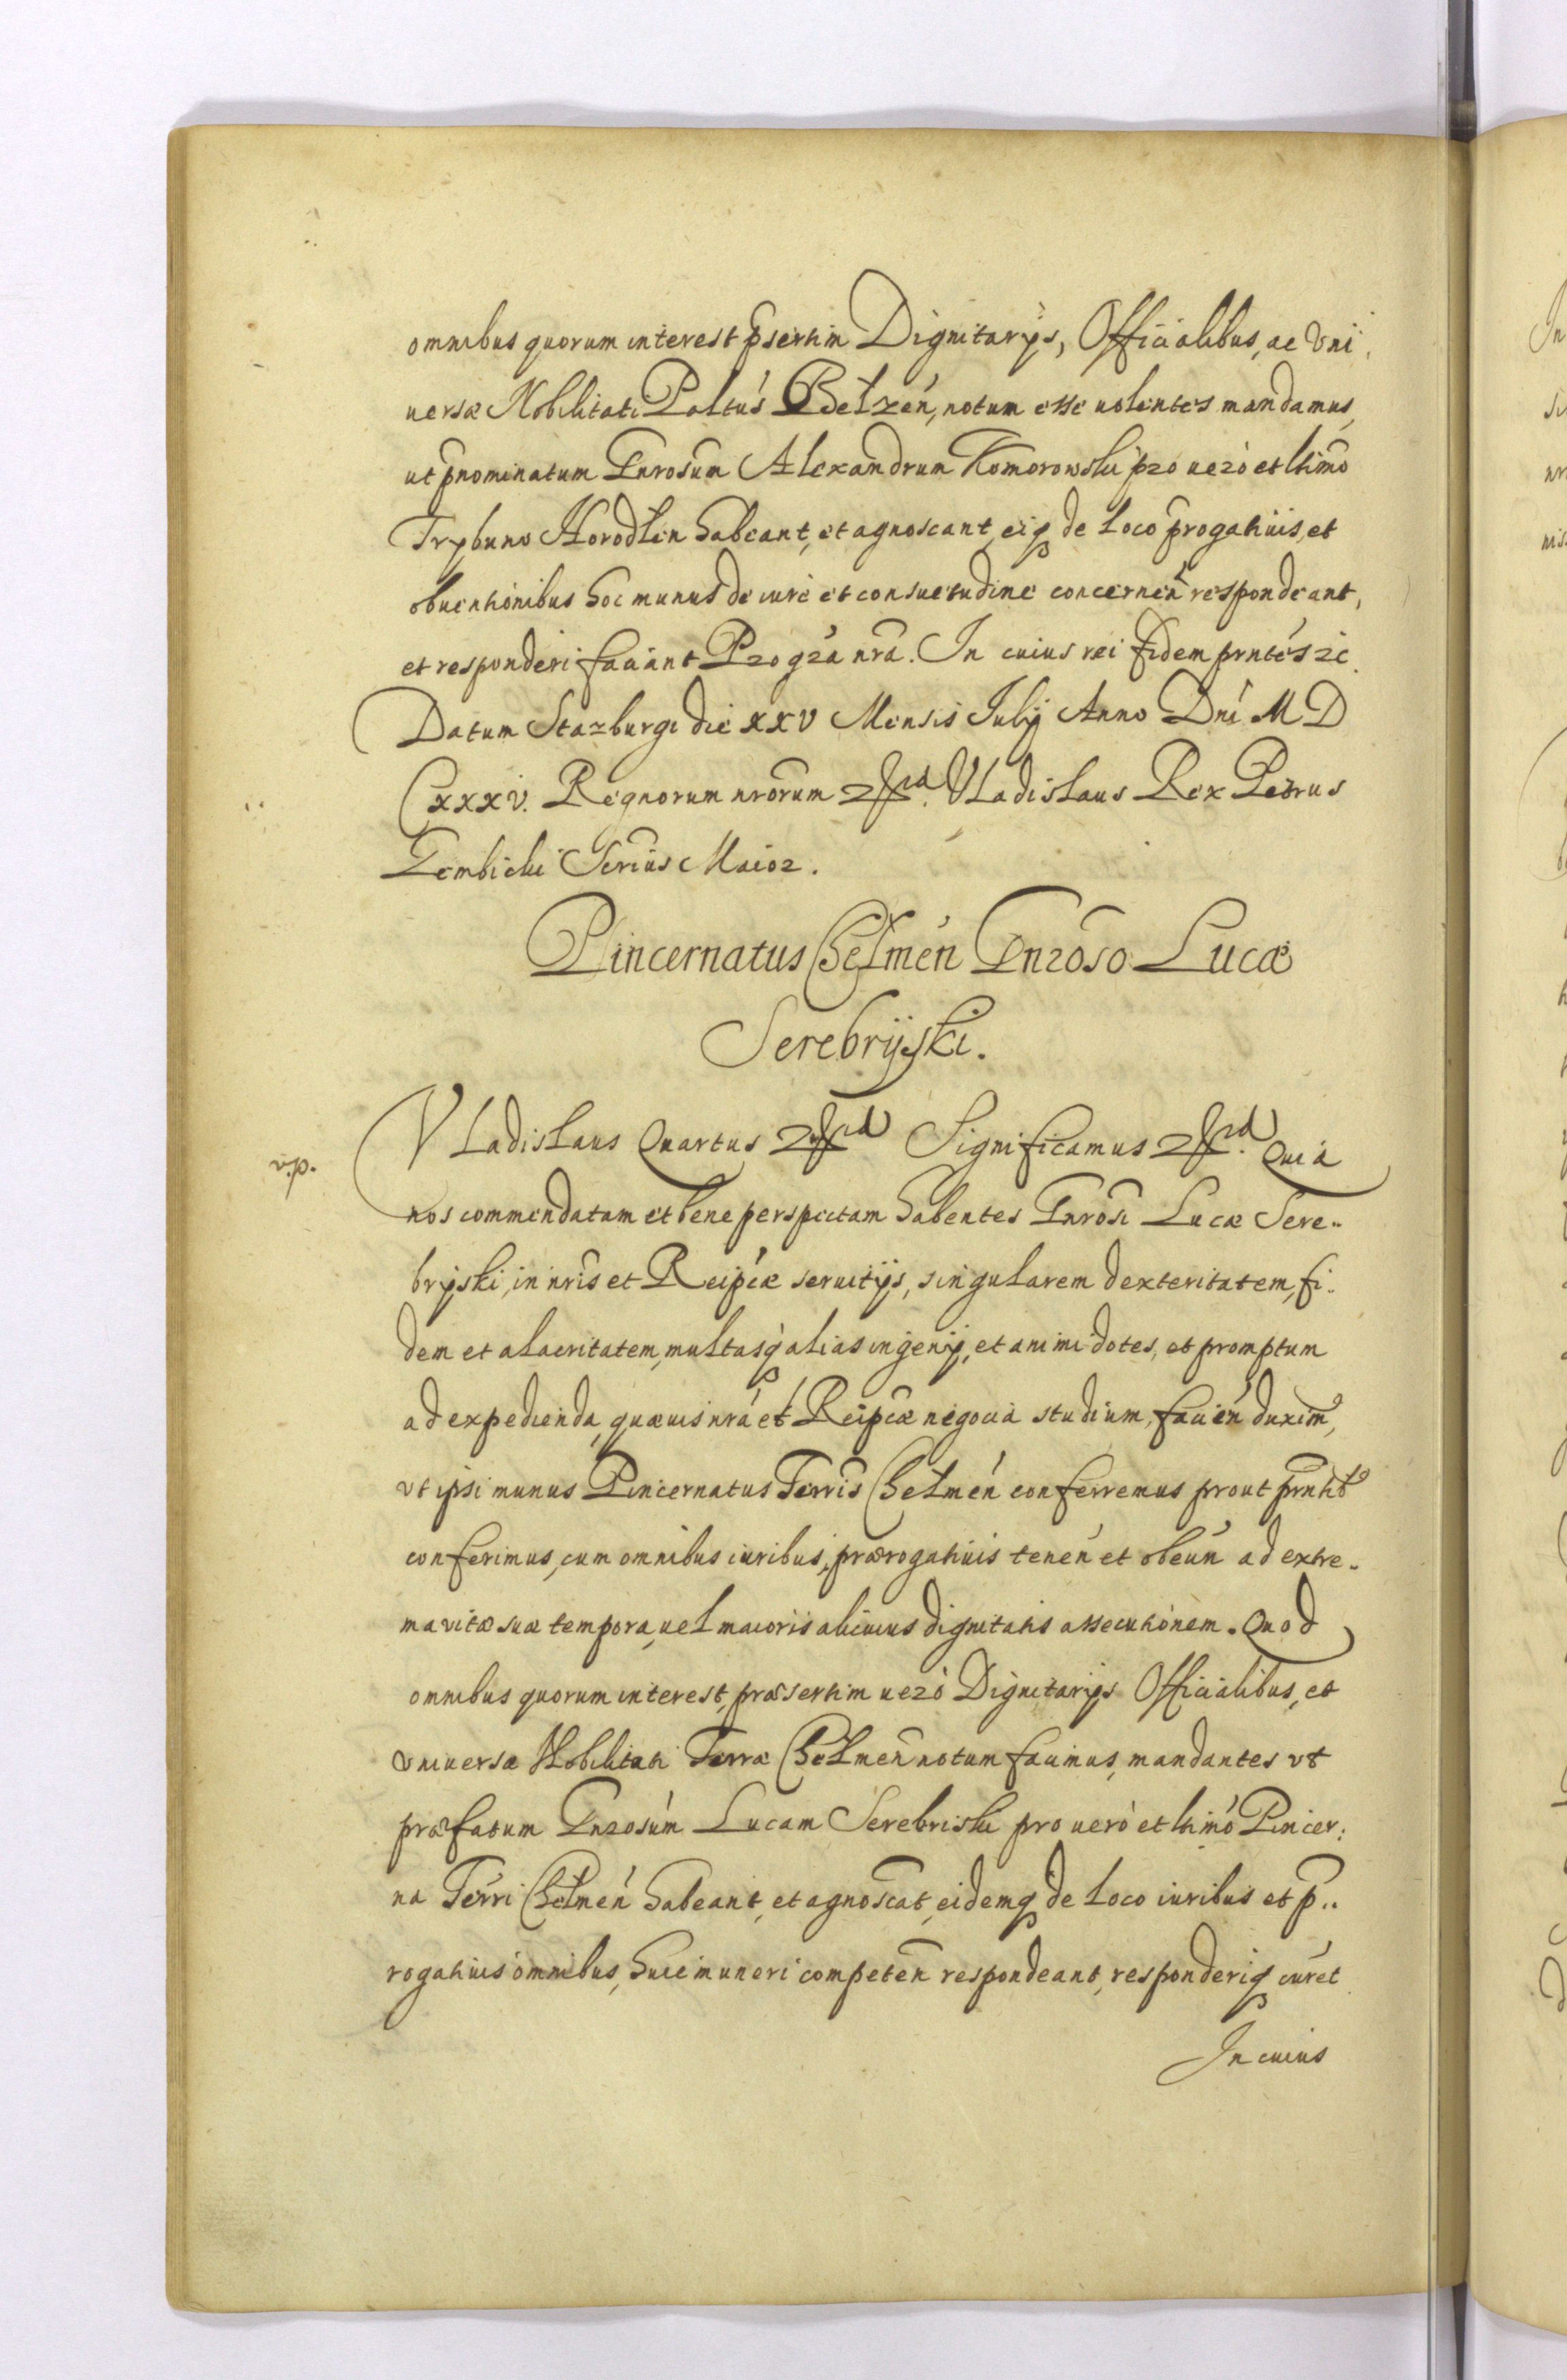 omnibus quorum interest p̃sertim Dignitarijs, Officialibus, ac Vni
uersæ Nobilitati Paltús Bełzeń, notum esse uolentes mandamus,
ut p̃nominatum Gnrosum Alexandrum Komorowski pro uerò et ltimo
Trybuno Horodlen habeant, et agnoscant, eiq de loco prrogatiuis, et
obuentionibus hoc munus de iure et consuetudine concerneñ respondeant,
et responderi faciant Pro grã nrã. In cuius rei fidem prntes zc.
Datum Starburgi die XXV Mensis Iulij Anno Dni M D
CXXXV. Regnorum nrorum &c. Vladislaus Rex Petrus
Gembicki Scrius Maior.
Pincernatus Chełmeń Gnroso Lucæ
Serebrijski.
Vladislaus Quartus &c. Significamus &c. Quia
nos commendatam et bene perspectam habentes Gnrosi Lucæ Sere-
brijski, in nris et Reipcæ seruitijs, singularem dexteritatem, fi-
dem et alacritatem, multasq alias ingenij, et animi dotes, et promptum
ad expedienda, quæuis nrá et Reipcæ negocia studium, facień duxim9,
vt ipsi munus Pincernatus Terris Chełmeń conferremus prout prntib9
conferimus, cum omnibus iuribus, prærogatiuis teneń et obeuń ad extre-
ma vitæ suæ tempora, uel maioris alicuius dignitatis assecutionem. Quod
omnibus quorum interest, præsertim uerò Dignitarijs Officialibus, et
vniuersæ Nobilitati Terræ Chełmeń notum facimus, mandantes vt
præfatum Gnrosúm Lucam Serebriski pro uerò et ltimo Pincer:
na Terri Chełmeń habeant, et agnoscãt, eidemq de loco iuribus et p̃-
rogatiuis omnibus, huic muneri competeñ respondeant, responderiq curét
In cuius
v.p.